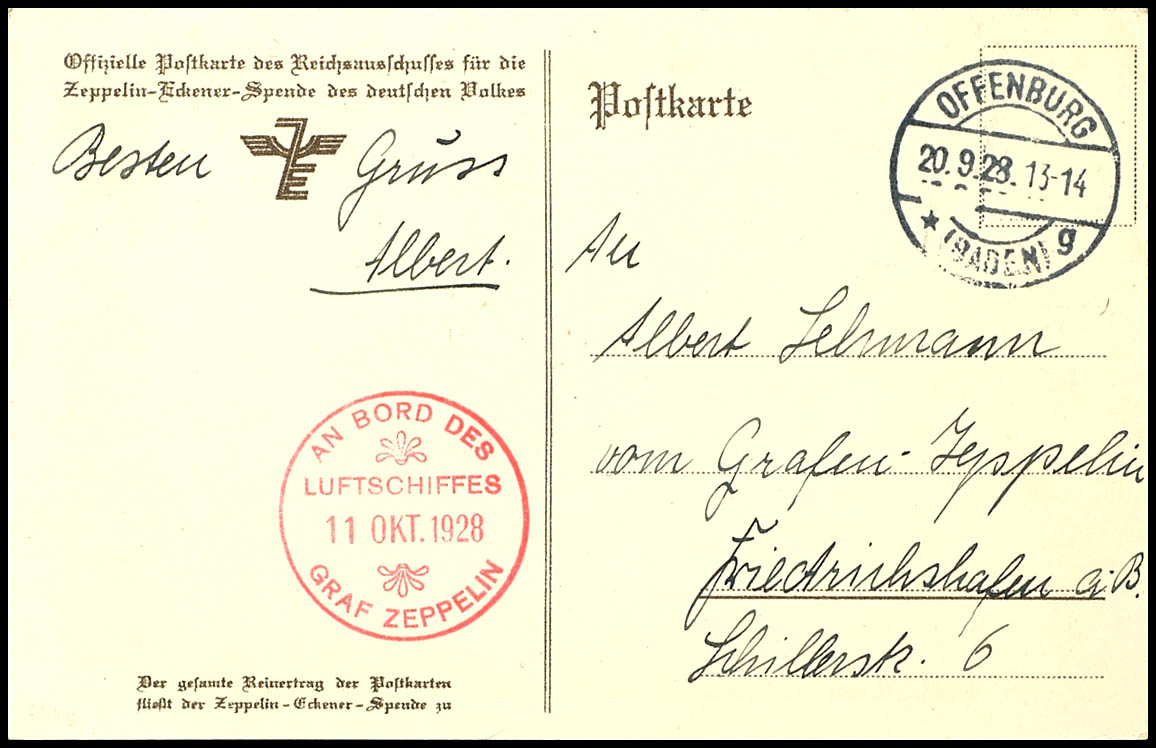 Offizielle Postkarte des Reichsausschusses für die
Zeppelin-Eckener-Spende des deutschen Volkes
Besten Gruss
Albert.
AN BORD DES
LUFTSCHIFFES
11 OKT. 1928
GRAF ZEPPELIN
Der gesamte Reinertrag der Postkarten
fließt der Zeppelin-Eckener-Spende zu
Postkarte
OFFENBURG
20.9.28. 13-14
★ (BADEN) g
An
Albert Lehmann
vom Grafen-Zeppelin
Friedrichshafen a. B.
Schillerstr. 6